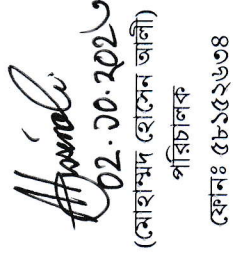 ০২.১০.২০২৩
(মোহাম্মদ হোসেন আলী)
পরিচালক
ফোনঃ ৫৮১৫২৬৩৪